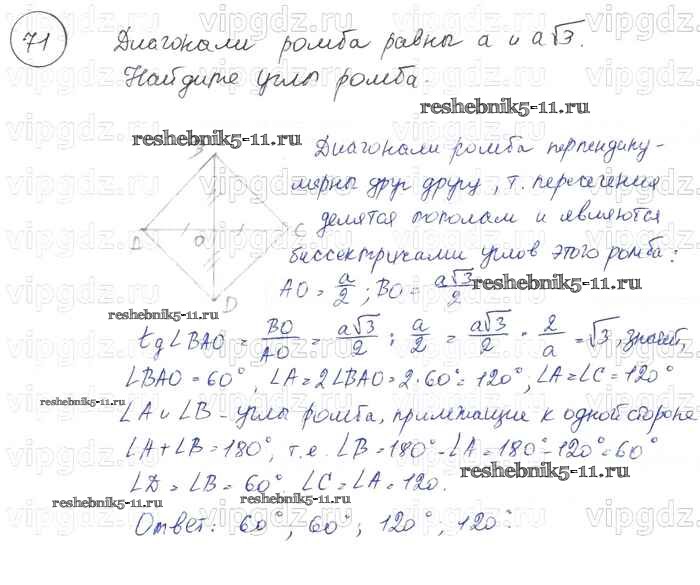 71 Диагонали ромба равны a и a√3.
Найдите углы ромба.
reshebnik5-11.ru
reshebnik5-11.ru
B
D O C
D
Диагонали ромба перпендику-
лярны друг другу, т. пересечения
делятся пополам и являются
биссектрисами углов этого ромба:
AO = a/2 ; BO = a√3/2
reshebnik5-11.ru
reshebnik5-11.ru
tg∠BAO = BO/AO = a√3/2 : a/2 = a√3/2 · 2/a = √3, значит,
∠BAO = 60°, ∠A = 2∠BAO = 2·60° = 120°, ∠A = ∠C = 120°
reshebnik5-11.ru
∠A и ∠B – углы ромба, прилежащие к одной стороне
∠A + ∠B = 180°, т.е. ∠B = 180° - ∠A = 180° - 120° = 60°
reshebnik5-11.ru
∠D = ∠B = 60°, ∠C = ∠A = 120.
reshebnik5-11.ru
reshebnik5-11.ru
Ответ: 60°; 60°; 120°; 120°.
vipgdz.ru